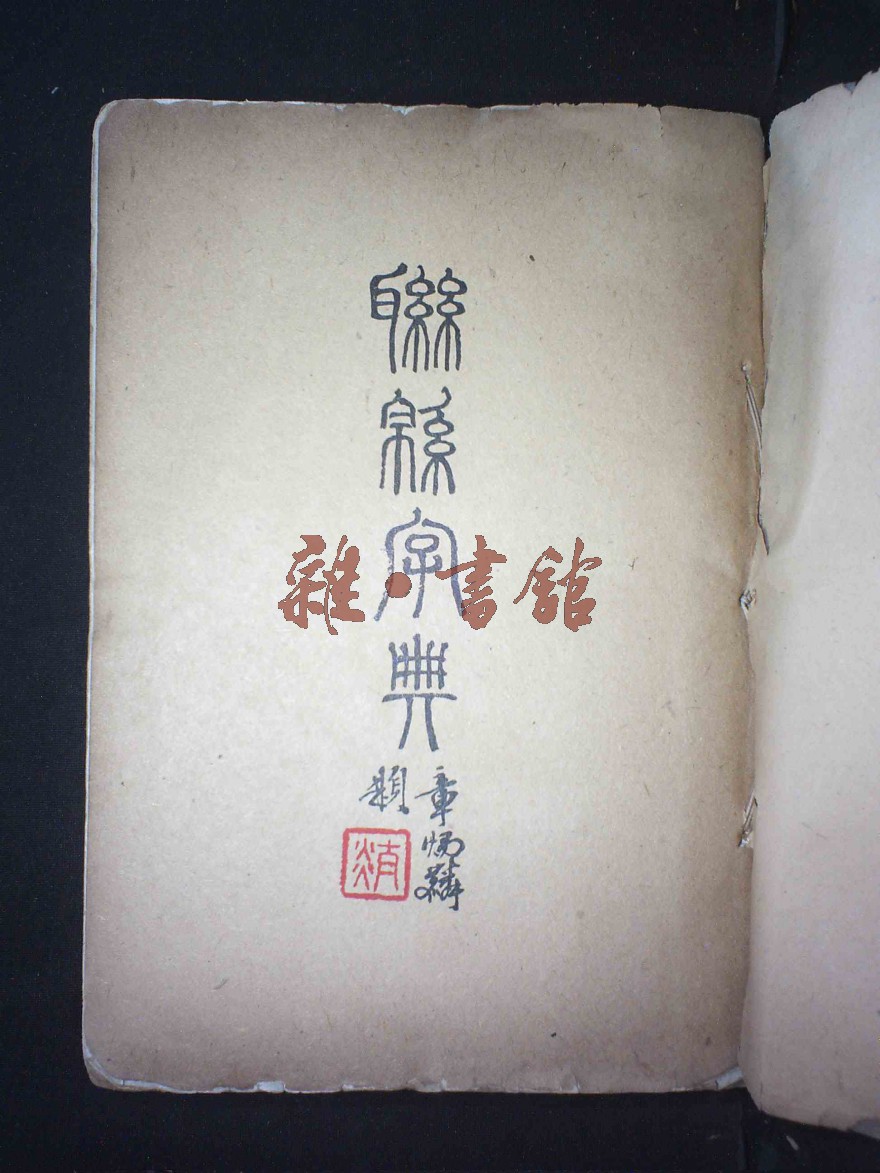 聯緜字典
章炳麟
題
雜·書館